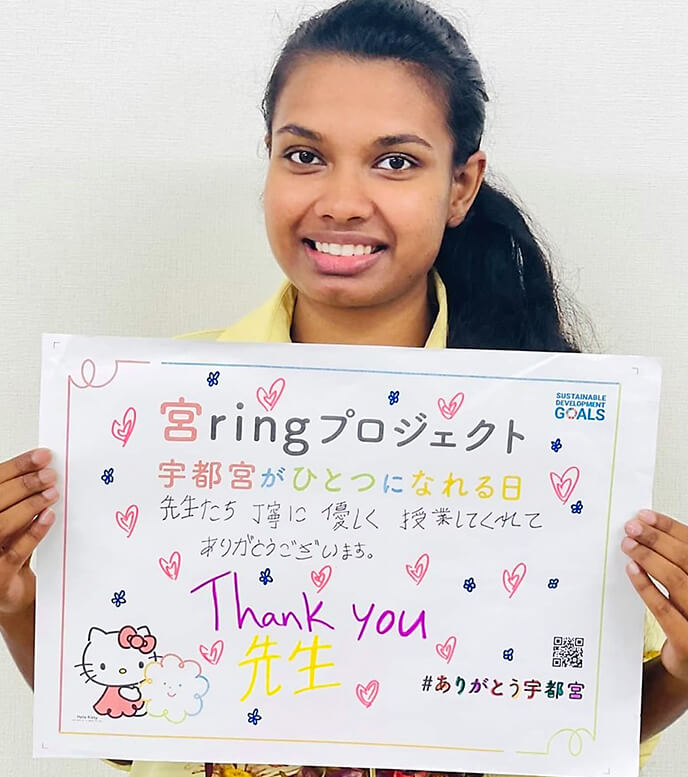 SUSTAINABLE
DEVELOPMENT
GOALS
宮ringプロジェクト
宇都宮がひとつになれる日
先生たち 丁寧に 優しく 授業してくれて
ありがとうございます。
Thank you
先生
#ありがとう宇都宮
Hello Kitty